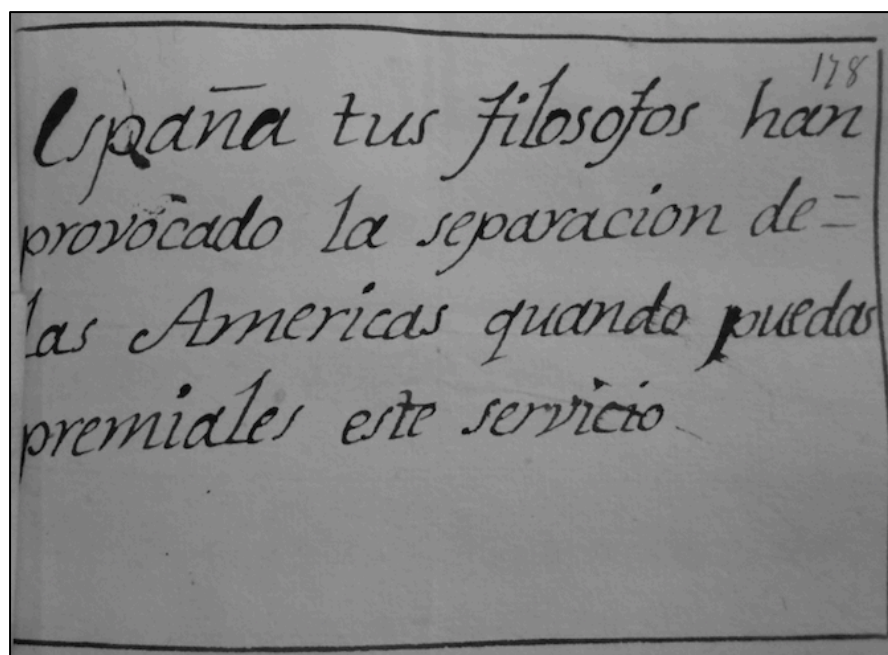 178
España tus filosofos han
provocado la separacion de=
las Americas quando puedas
premiales este servicio